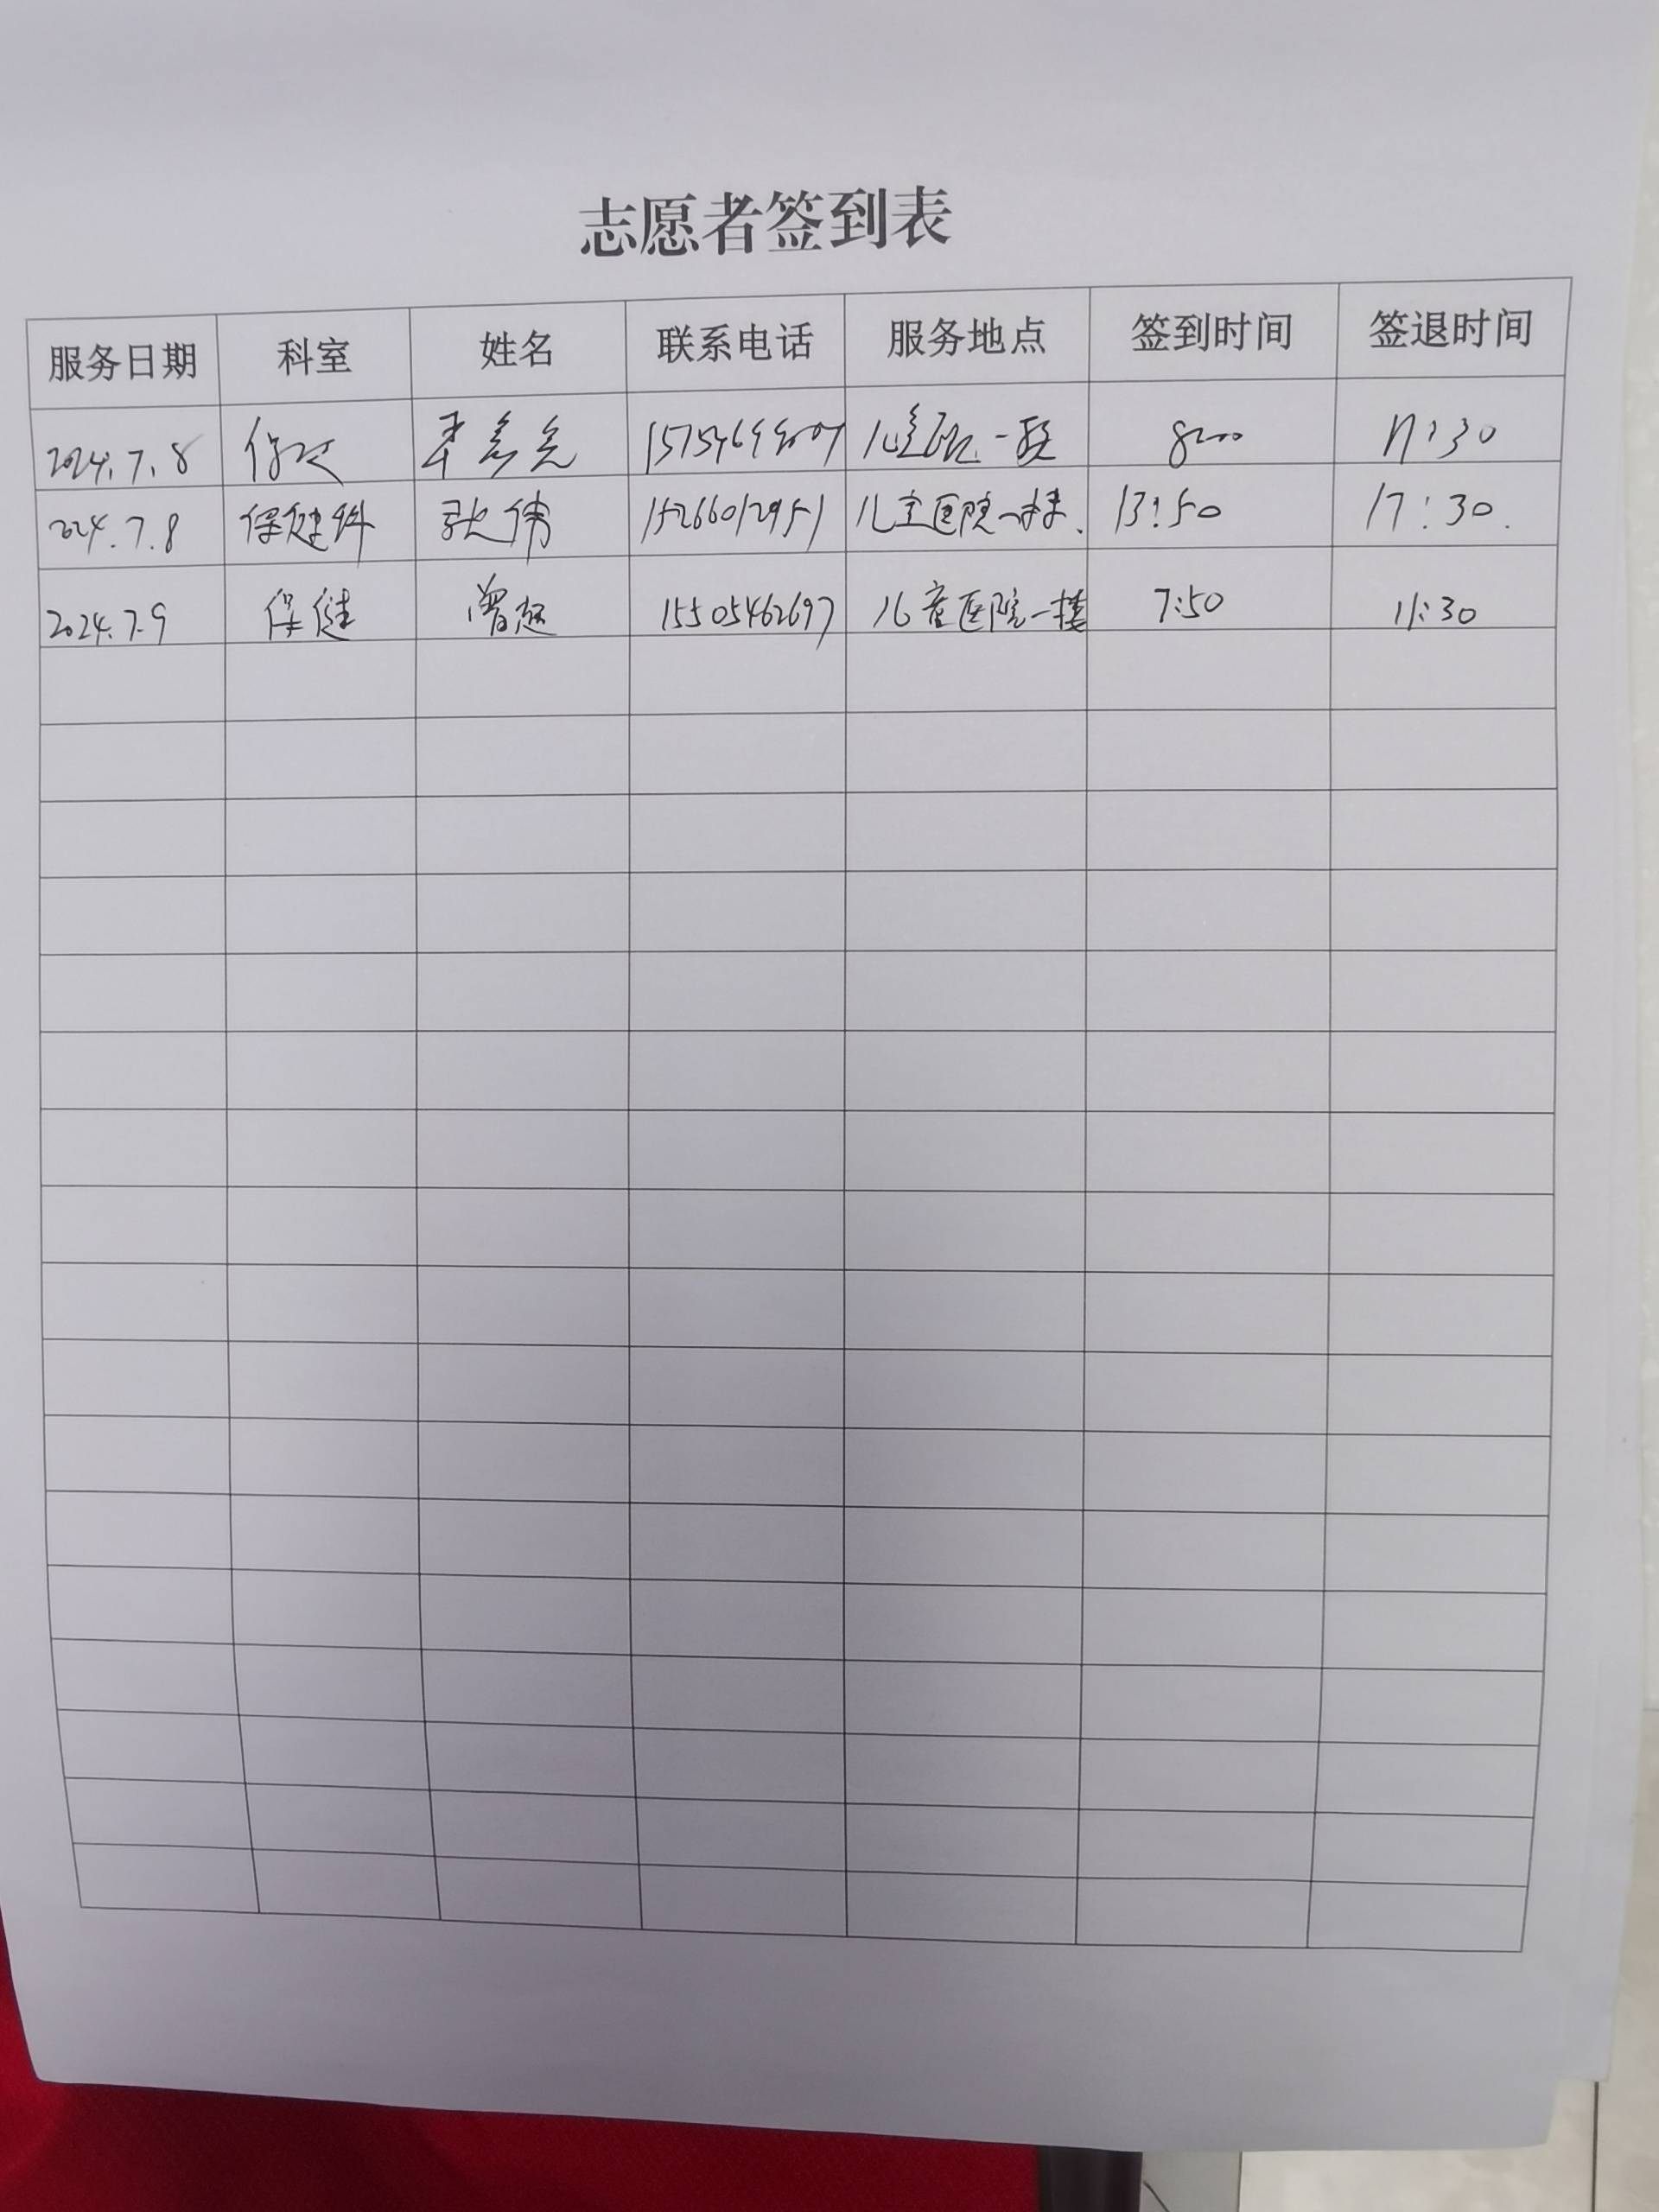 志愿者签到表
服务日期 科室 姓名 联系电话 服务地点 签到时间 签退时间
2024.7.8 一楼 8:00 11:30
2024.7.8 保健科 张伟 15266012951 儿童医院一楼. 13:50 17:30.
2024.7.9 保健 曾超 15505462697 儿童医院一楼 7:50 11:30